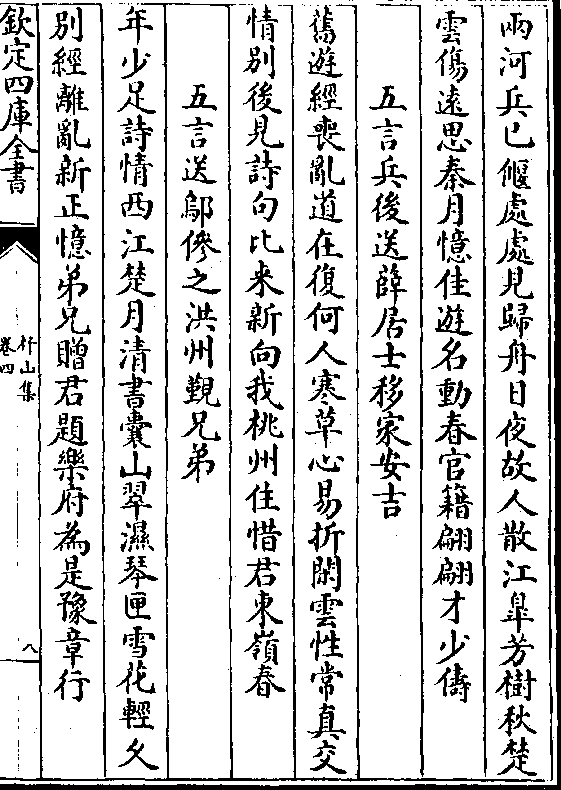 兩河兵已偃處處見歸舟日夜故人散江臯芳樹秋楚
雲傷遠思秦月憶佳遊名動春官籍翩翩才少儔
五言兵後送薛居士移家安吉
舊遊經喪亂道在復何人寒草心易折閑雲性常真交
情別後見詩句比来新向我桃州住惜君東嶺春
五言送鄔傪之洪州覲兄弟
年少足詩情西江楚月清書囊山翠濕琴匣雪花輕久
別經離亂新正憶弟兄贈君題樂府為是豫章行
欽定四庫全書
杼山集
卷四
八